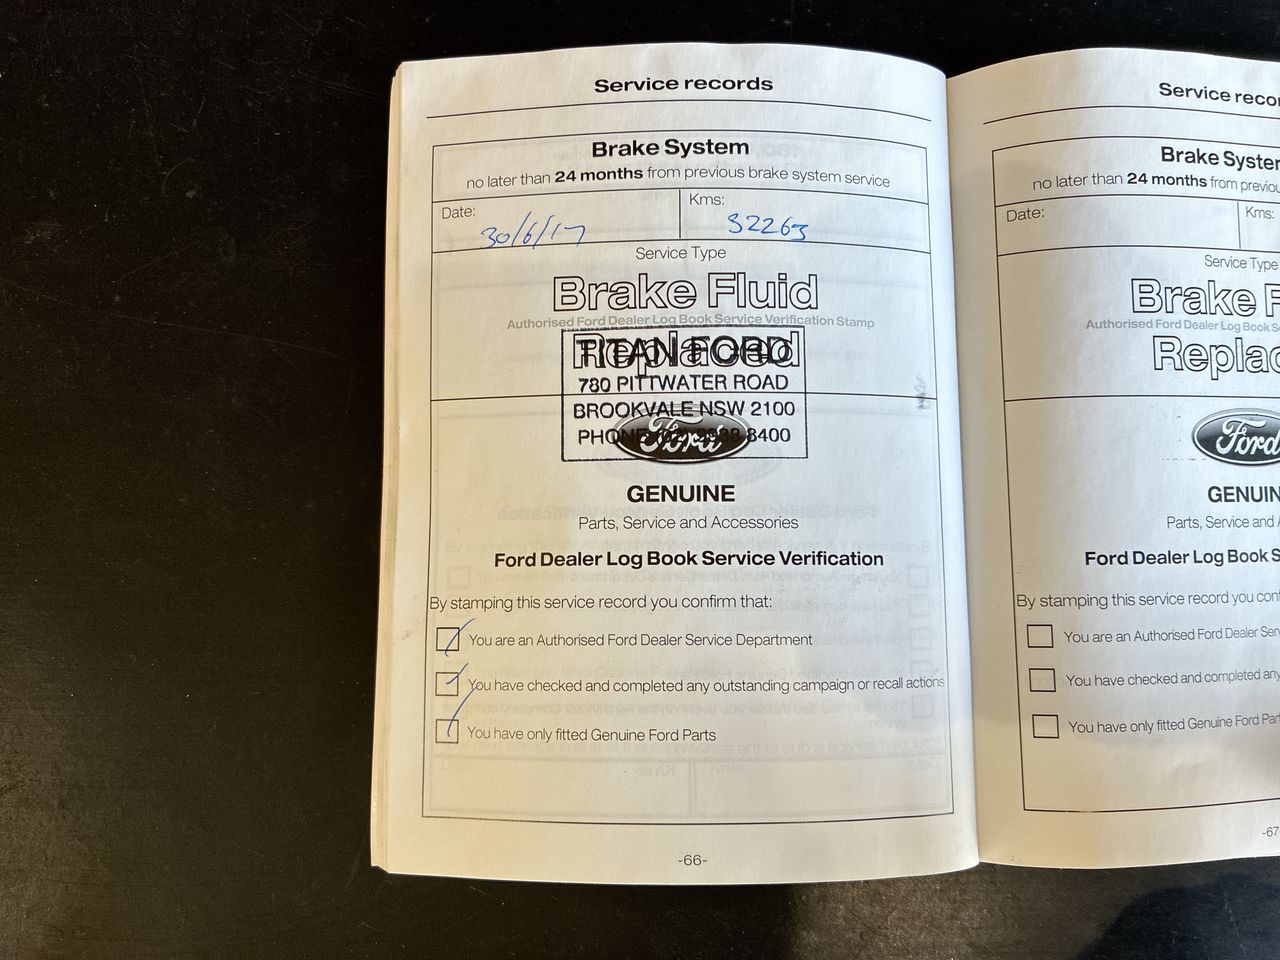 Service records
Brake System
no later than 24 months from previous brake system service
Date: Kms:
30/6/17 32263
Service Type
Brake Fluid
Authorised Ford Dealer Log Book Service Verification Stamp
Replaced
TITAN FORD
780 PITTWATER ROAD
BROOKVALE NSW 2100
PHONE (02) 9938 8400
Ford
GENUINE
Parts, Service and Accessories
Ford Dealer Log Book Service Verification
By stamping this service record you confirm that:
You are an Authorised Ford Dealer Service Department
You have checked and completed any outstanding campaign or recall actions
You have only fitted Genuine Ford Parts
-66-
Service recor
Brake System
no later than 24 months from previou
Date: Kms:
Service Type
Brake F
Authorised Ford Dealer Log Book S
Replac
Ford
GENUIN
Parts, Service and A
Ford Dealer Log Book S
By stamping this service record you conf
You are an Authorised Ford Dealer Serv
You have checked and completed any
You have only fitted Genuine Ford Par
-67